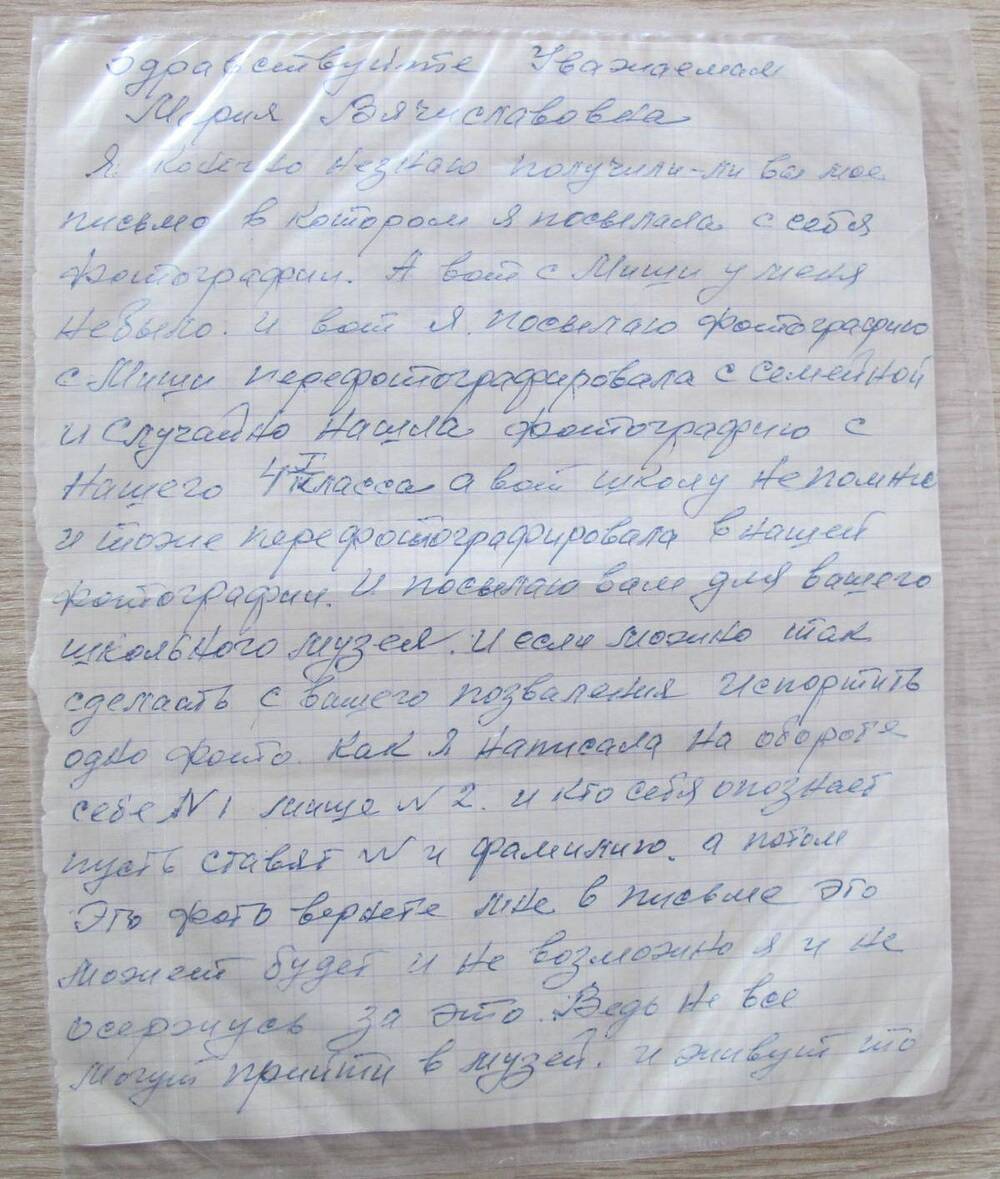 Здравствуйте Уважаемая
Мария Вячиславовна
Я конечно незнаю получили-ли вы мое
письмо в котором я посылала с себя
фотографии. А вот с Миши у меня
небыло. и вот я посылаю фотографию
с Миши перефотографировала с семейной
и случайно нашла фотографию с
нашего 4 класса а вот школу непомню
и тоже перефотографировала в нашей
фотографии. И посылаю вам для вашего
школьного музея. И если можно так
сделать с вашего позваления испортить
одно фото. Как я написала на обороте
себе N1 мише N 2. и кто себя опознает
пусть ставят N и фамилию. а потом
Это фото вернете мне в письме это
может будет и не возможно я и не
осержусь за это. Ведь не все
могут прийти в музей. и живут то